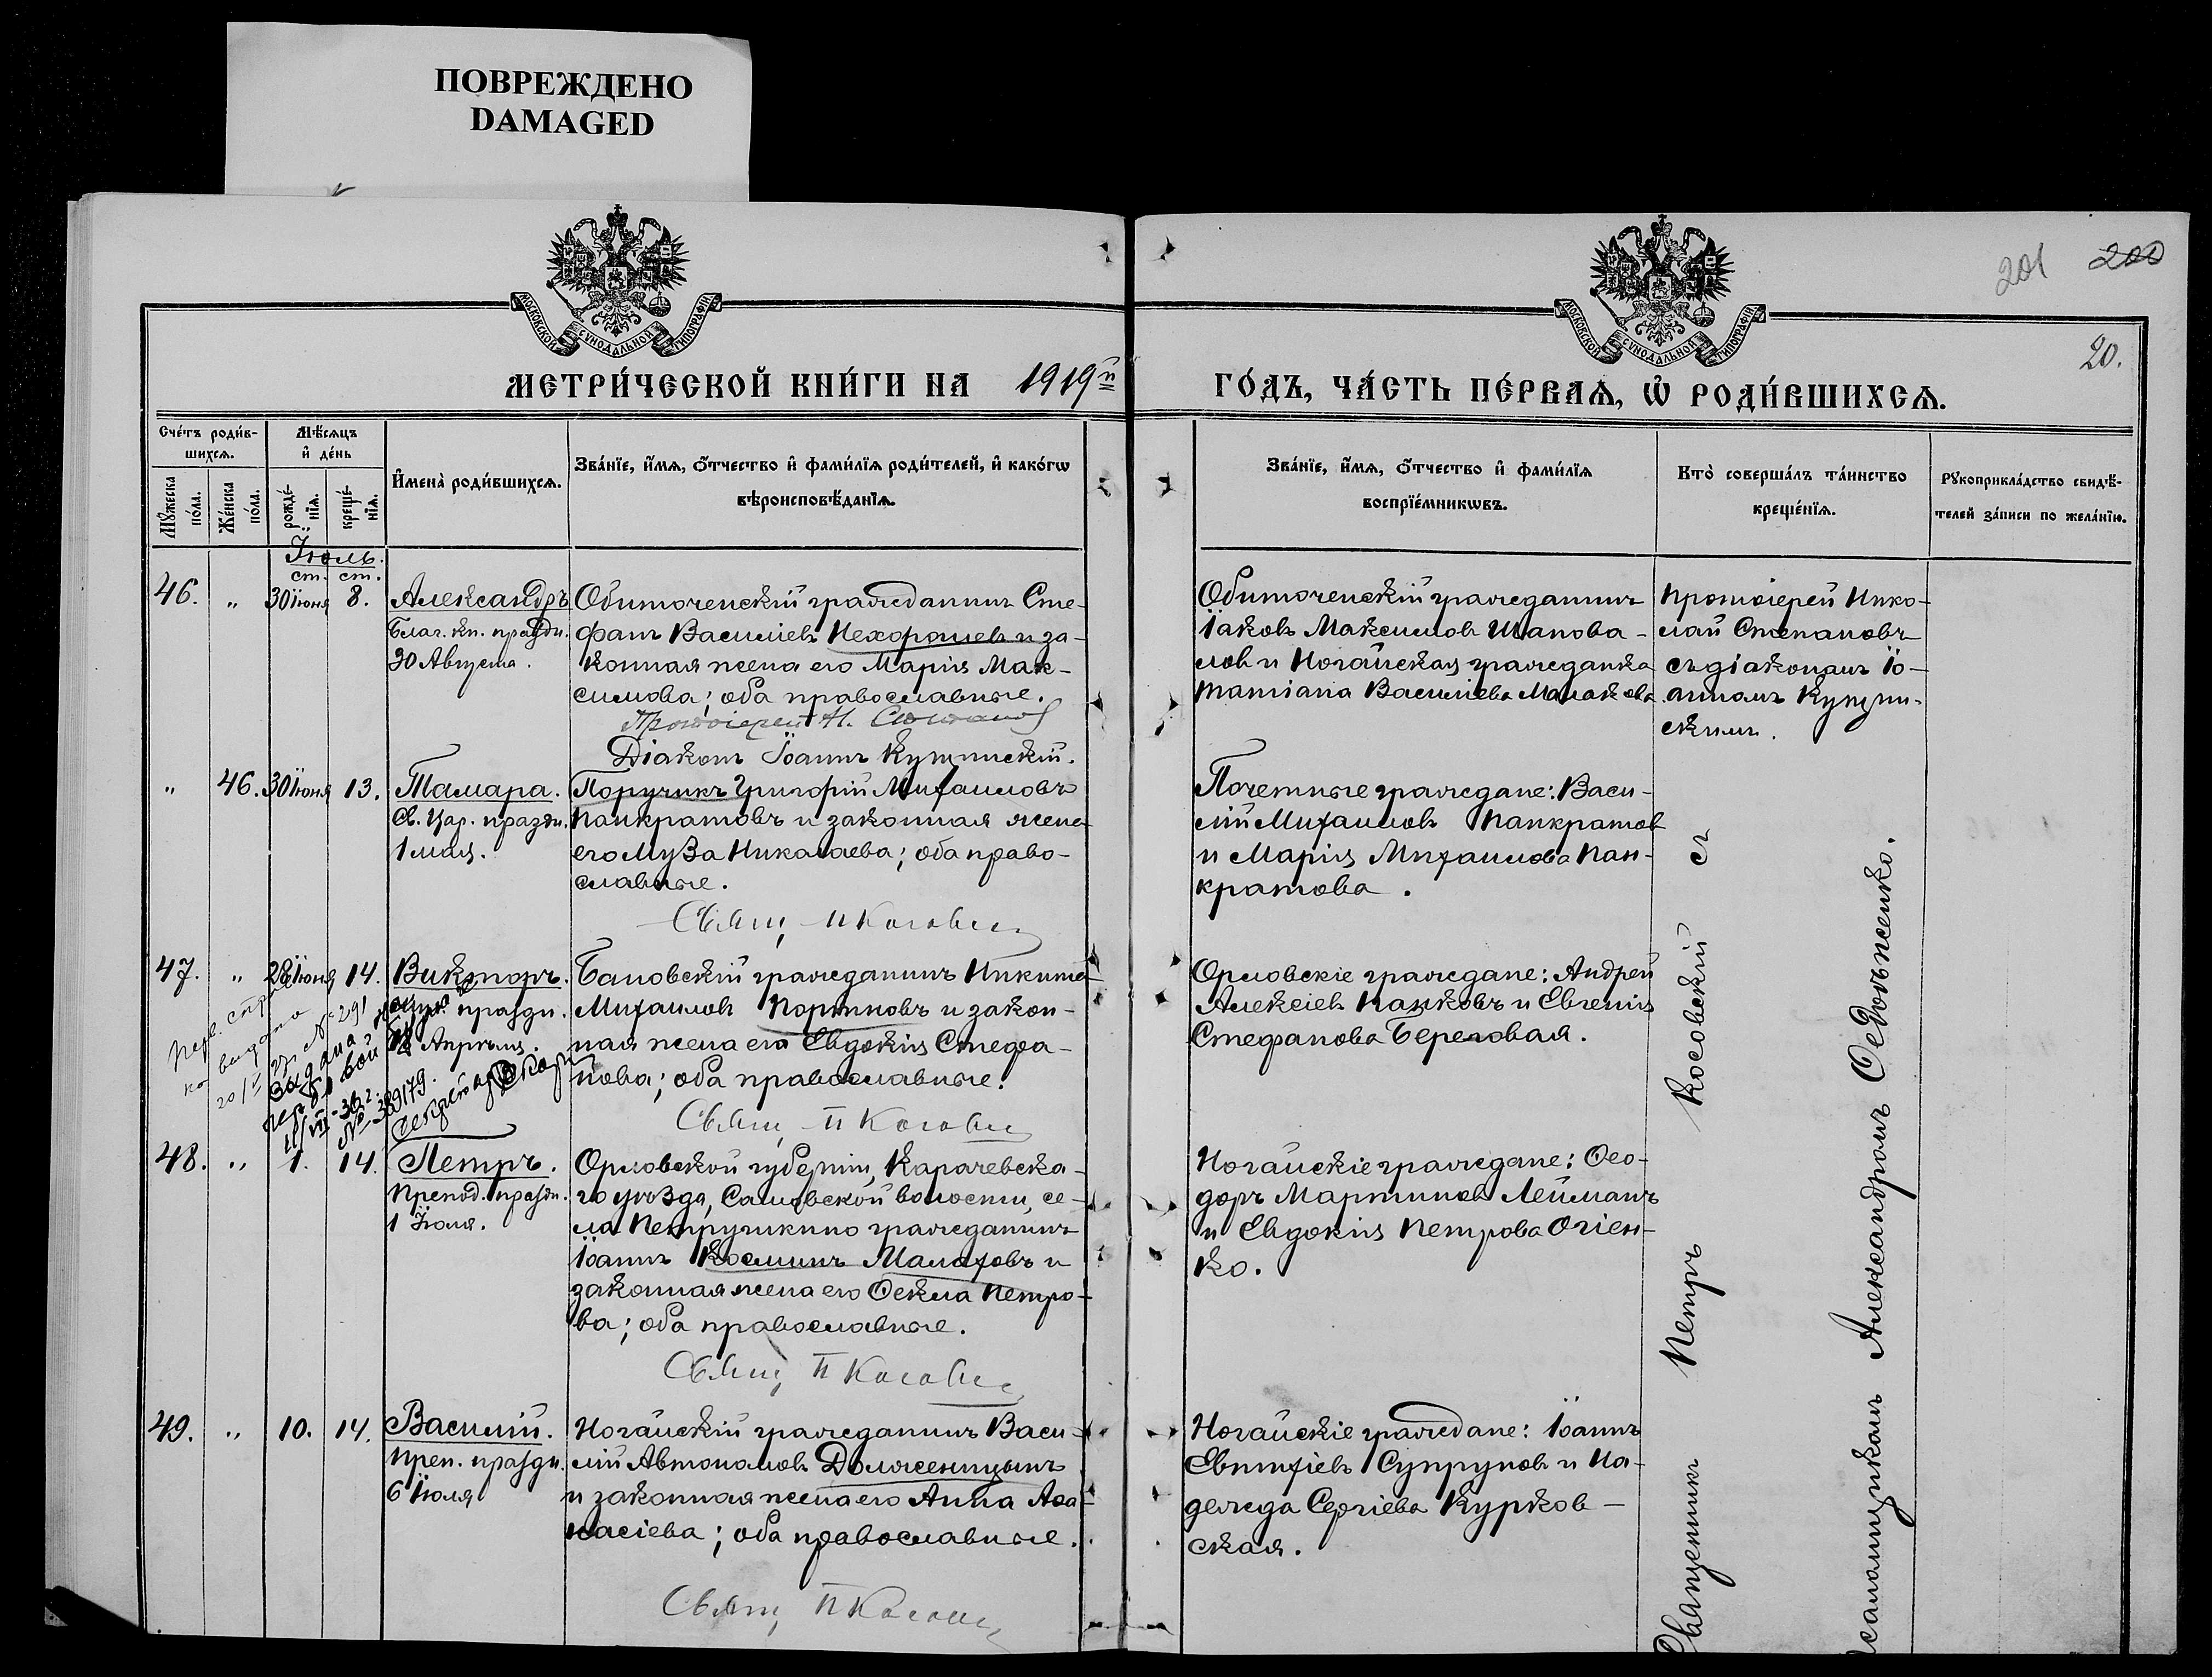 ПОВРЕЖДЕНО
DAMAGED
МОСКОВСКОЙ СУНОДАЛЬНОЙ ТИПОГРАФІИ
МОСКОВСКОЙ СУНОДАЛЬНОЙ ТИПОГРАФІИ
201 200
20.
МЕТРИ́ЧЕСКОЙ КНИ́ГИ НА 1919й
ГО́ДЪ, ЧА́СТЬ ПЕ́РВАѦ, Ѡ РОДИ́ВШИХСѦ.
Сче́тъ роди́в-
шихсѧ.
Мꙋ́жеска по́ла.
Же́нска по́ла.
Мѣ́сѧцъ
и҆ де́нь
рожде́-
нїѧ.
креще́-
нїѧ.
И҆мена̀ роди́вшихсѧ.
Зва́нїе, и҆́мѧ, ѻ҆́тчество и҆ фами́лїѧ роди́телей, и҆ како́гѡ
вѣроисповѣ́данїѧ.
Зва́нїе, и҆́мѧ, ѻ҆́тчество и҆ фами́лїѧ
воспрїе́мникѡвъ.
Кто̀ соверша́лъ та́инство
креще́нїѧ.
Рꙋкоприкла́дство свидѣ́-
телей за́писи по жела́нїю.
Іюль.
ст. ст.
46. " 30 іюня 8.
Александръ
Благ. кн. праздн.
30 Августа.
Обиточенскій гражданинъ Сте-
фанъ Васильевъ Нехорошевъ и за-
конная жена его Марія Мак-
симова; оба православные.
Протоіерей Н. Степановъ
Діаконъ Іоаннъ Кутинскій.
Обиточенскій гражданинъ
Іаковъ Максимовъ Шапова-
ловъ и Ногайская гражданка
Татіана Васильева Малахова
Протоіерей Нико-
лай Степановъ
съ діакономъ Іо-
анномъ Кутин-
скимъ.
" 46. 30 іюня 13.
Тамара.
Св. Цар. праздн.
1 мая.
Поручикъ Григорій Михаиловъ
Панкратовъ и законная жена
его Муза Николаева; оба право-
славные.
Свящ. П Косовскі
Почетные граждане: Васи-
лій Михаиловъ Панкратовъ
и Марія Михаилова Пан-
кратова.
47. " 28 іюня 14.
Викторъ.
праздн.
Апрѣля.
№ 291
Выдана
№ 389179.
Бановскій гражданинъ Никита
Михаиловъ Портновъ и закон-
ная жена его Евдокія Стефа-
нова; оба православные.
Свящ. П Косовскі
Орловскіе граждане: Андрей
Алексіевъ Панковъ и Евгенія
Стефанова Береговая.
48. " 1. 14.
Петръ.
Препод. праздн.
1 Іюля.
Орловской губерніи, Карачевска-
го уѣзда, Самовской волости, се-
ла Петрушкино гражданинъ
Іоаннъ Косминъ Малаховъ и
законная жена его Ѳекла Петро-
ва; оба православные.
Свящ. П Косовскі
Ногайскіе граждане: Ѳео-
доръ Мартиновъ Лейманъ
и Евдокія Петрова Огіен-
ко.
49. " 10. 14.
Василій.
Преп. праздн.
6 Іюля
Ногайскій гражданинъ Васи-
лій Автономовъ Долженицынъ
и законная жена его Анна Аѳа-
насіева; оба православные.
Свящ. П Косовскі
Ногайскіе граждане: Іоаннъ
Евтихіевъ Супруновъ и На-
дежда Сергіева Курков-
ская.
Священникъ Петръ Косовскій съ
псаломщикомъ Александромъ Ѳедоѵженко.